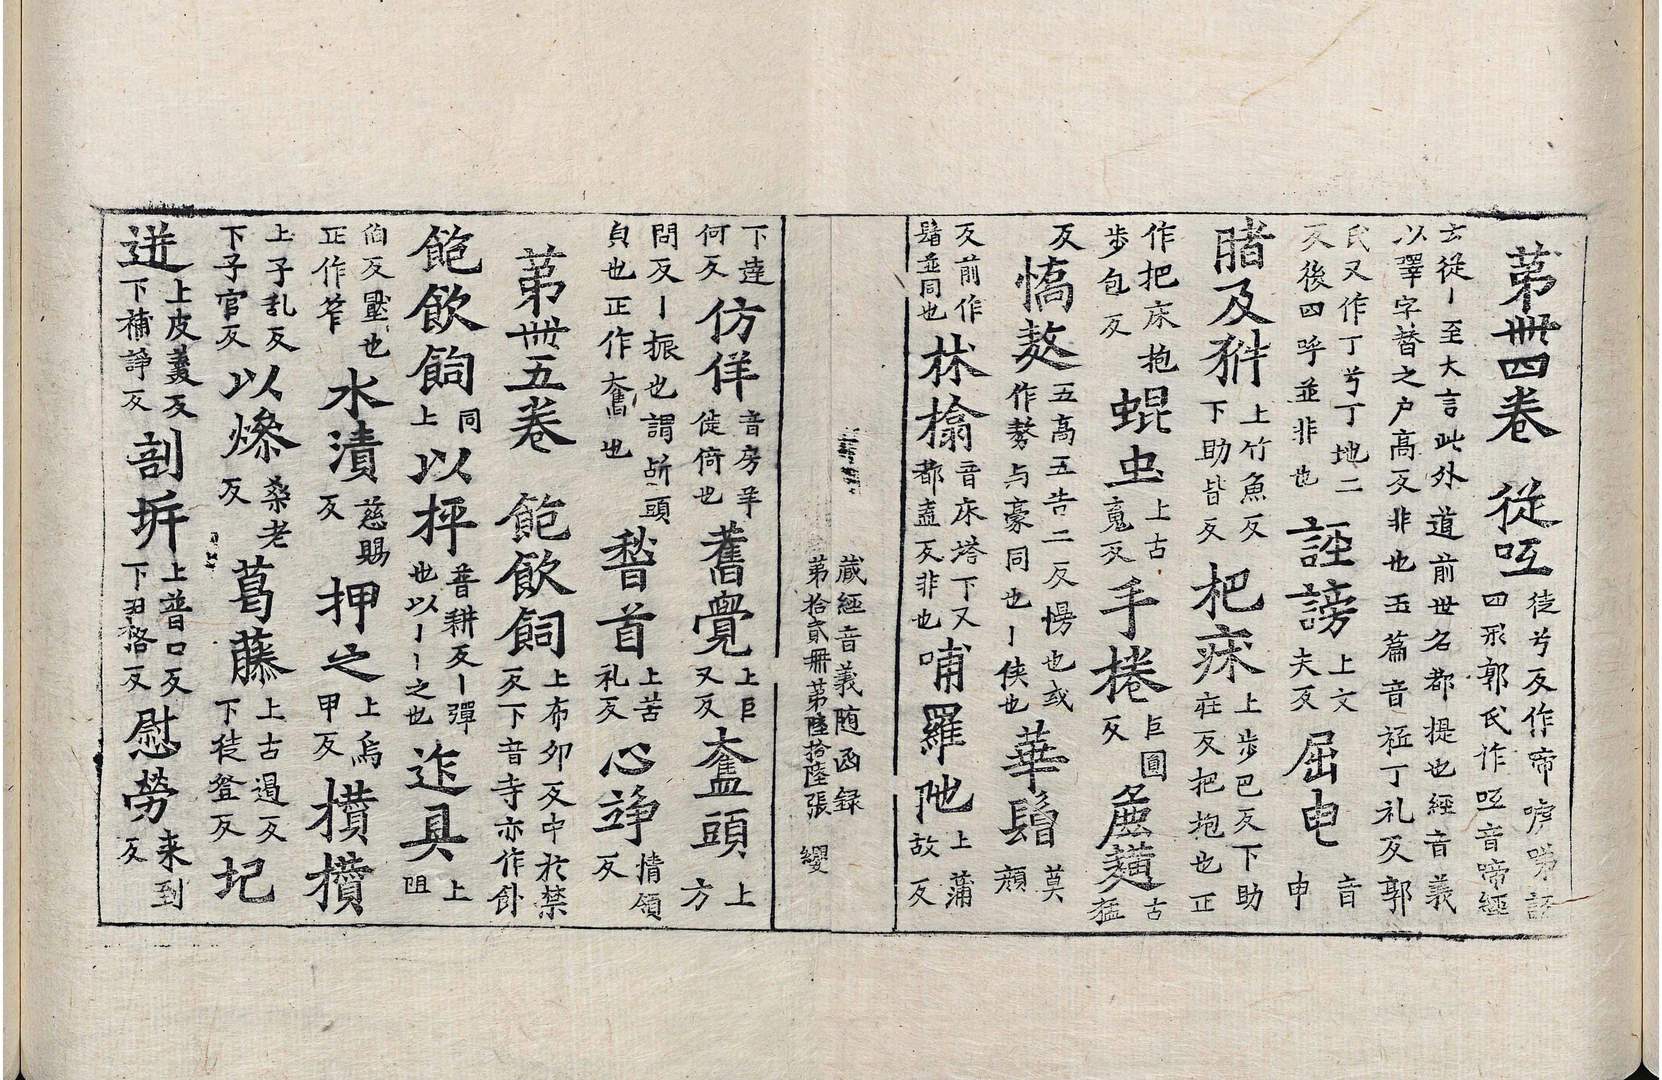 第卌四卷 從呧 徒兮反作啼嗁 四形郭氏作呧音啼經
玄從丨至大言此外道前世名都提也經音義以字替之户高反非也玉篇音袛丁礼反郭
氏又作丁兮丁地二反後四呼並非也 誣謗 上文夫反 屈申 音申
䐗及 上竹魚反下助皆反 杷床 上步巴反下助莊反把抱也正
作把床抱步包反 蜫虫 上古䰟反 手捲 巨圓反 麁 古猛
反 憍 五高五告二反慢也或作謷与豪同也丨俠也 華鬘 莫顔
反前作並同也 林檎 音床塔下又都盍反非也 哺羅阤 上蒲故反
藏經音義随函録
第拾貳冊第陸拾陸張 纓
下達何反 仿佯 音房羊徙倚也 舊覺 上巨又反 奮頭 上方
問反丨振也謂斫頭貞也正作奮也 嵆首 上苦礼反 心竫 情領反
第卌五卷 飽飲飼 上布夘反中於禁反下音寺亦作飤
飽飲飼 同上 以抨 普耕反丨彈也以丨丨之也 迮具 上阻
伯反壓也正作笮 水漬 慈賜反 押之 上烏甲反 攢攢
上子乱反下子官反 以燥 桒老反 葛藤 上古遏反下徒登反 圮
迸 上皮美反下補諍反 剖坼 上普口反下丑格反 慰勞 来到反